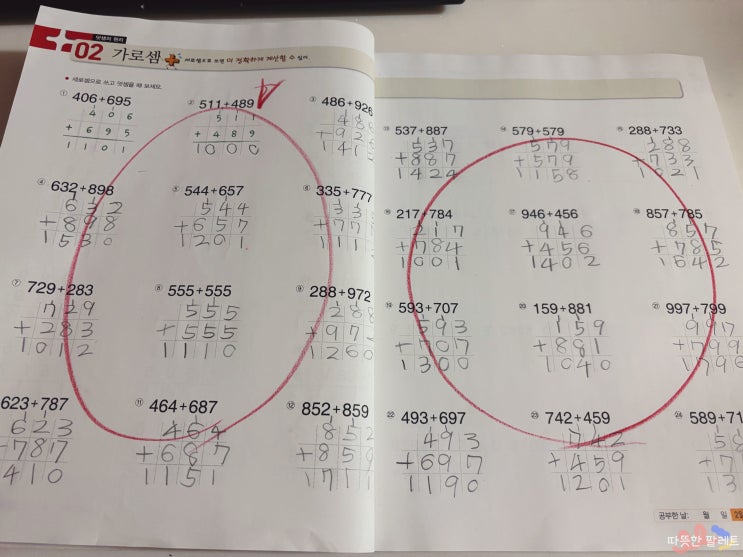 덧셈의 원리
02 가로셈 + 세로셈으로 쓰면 더 정확하게 계산할 수 있어.
● 세로셈으로 쓰고 덧셈을 해 보세요.
① 406+695
4 0 6
+ 6 9 5
1 1 0 1
② 511+489
5 1 1
+ 4 8 9
1 0 0 0
③ 486+926
4 8
+ 9 2
1 4 1
④ 632+898
6 3 2
+ 8 9 8
1 5 3 0
⑤ 544+657
5 4 4
+ 6 5 7
1 2 0 1
⑥ 335+777
3 3
+ 7 7
1 1 1
⑦ 729+283
7 2 9
+ 2 8 3
1 0 1 2
⑧ 555+555
5 5 5
+ 5 5 5
1 1 1 0
⑨ 288+972
2 8 8
+ 9 7 2
1 2 6 0
623+787
6 2 3
+ 7 8 7
4 1 0
⑪ 464+687
4 6 4
+ 6 8 7
1 1 5 1
⑫ 852+859
8 5 2
+ 8 5 9
1 7 1 1
⑬ 537+887
5 3 7
+ 8 8 7
1 4 2 4
⑭ 579+579
5 7 9
+ 5 7 9
1 1 5 8
⑮ 288+733
2 8 8
+ 7 3 3
1 0 2 1
⑯ 217+784
2 1 7
+ 7 8 4
1 0 0 1
⑰ 946+456
9 4 6
+ 4 5 6
1 4 0 2
⑱ 857+785
8 5 7
+ 7 8 5
1 6 4 2
⑲ 593+707
5 9 3
+ 7 0 7
1 3 0 0
⑳ 159+881
1 5 9
+ 8 8 1
1 0 4 0
㉑ 997+799
9 9 7
+ 7 9 9
1 7 9 6
㉒ 493+697
4 9 3
+ 6 9 7
1 1 9 0
㉓ 742+459
7 4 2
+ 4 5 9
1 2 0 1
㉔ 589+71
5 8
+ 7
1 3
공부한 날: 월 일
따뜻한 팔레트